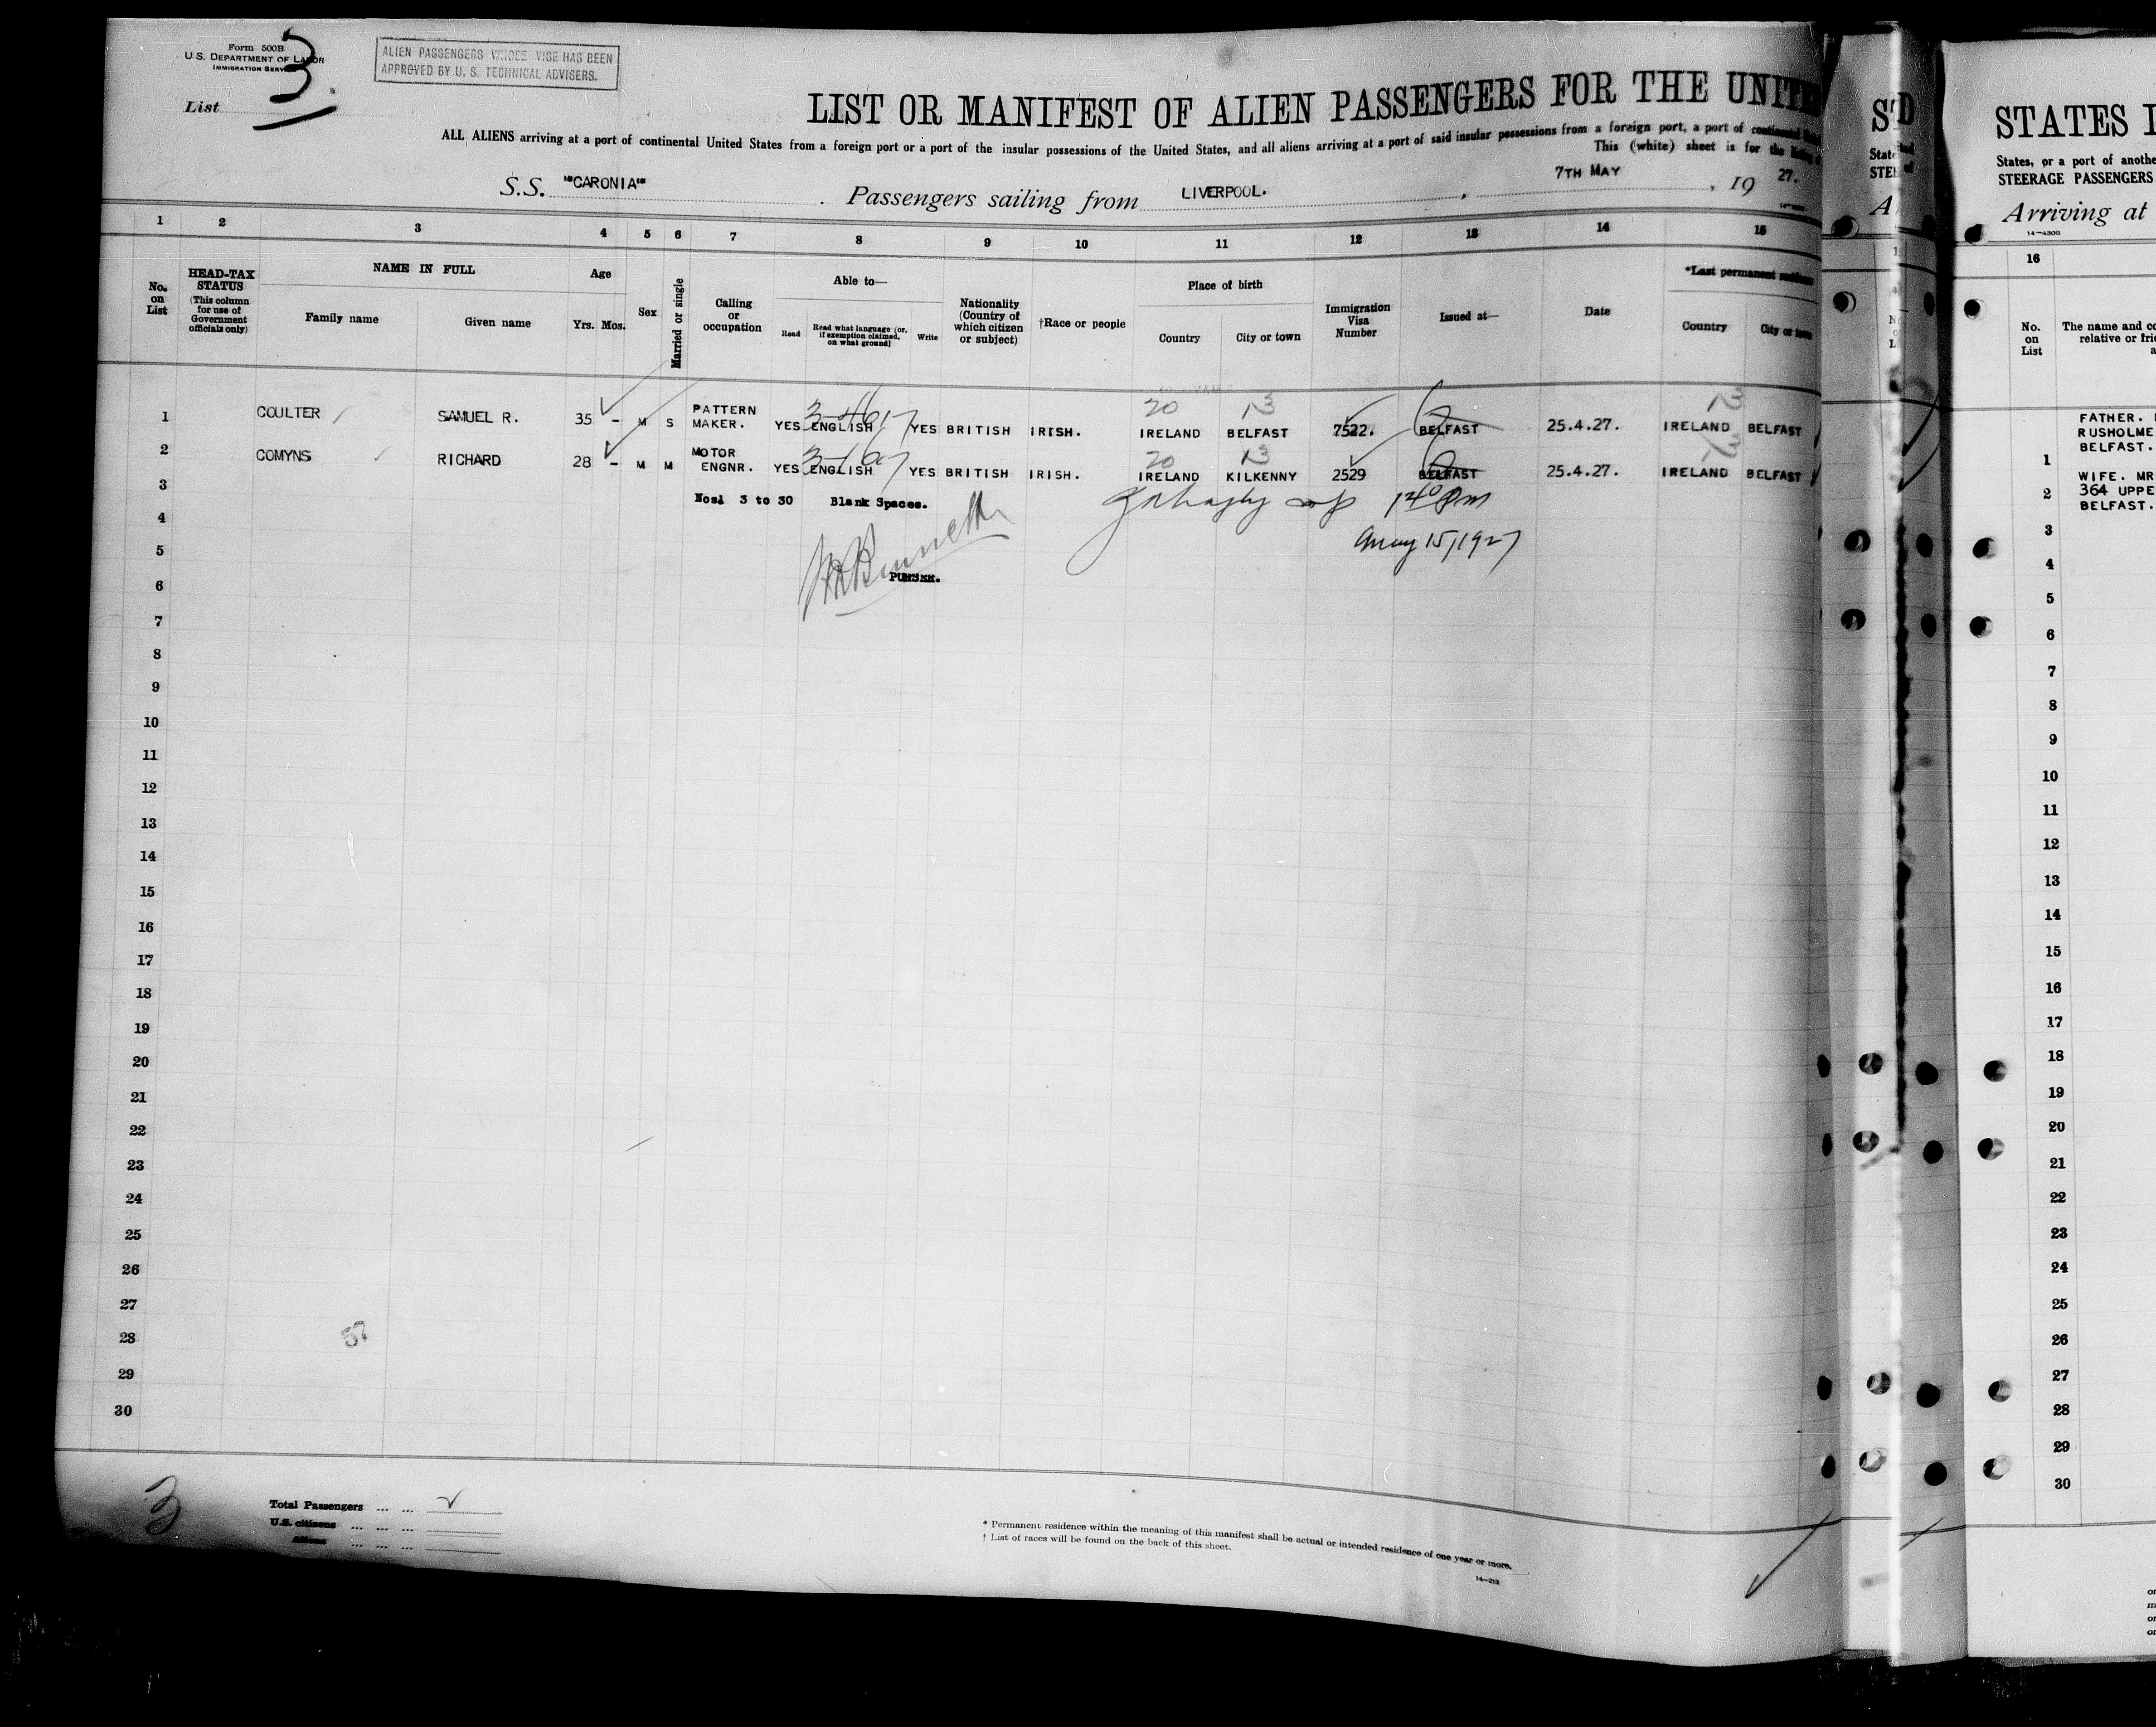 Form 500B
U.S. DEPARTMENT OF LABOR
IMMIGRATION SERVICE
List 3.
ALIEN PASSENGERS WHOSE VISE HAS BEEN
APPROVED BY U. S. TECHNICAL ADVISERS.
LIST OR MANIFEST OF ALIEN PASSENGERS FOR THE UNITE
ALL ALIENS arriving at a port of continental United States from a foreign port or a port of the insular possessions of the United States, and all aliens arriving at a port of said insular possessions from a foreign port, a port of continental
This (white) sheet is for the listing
S.S. "CARONIA" . Passengers sailing from LIVERPOOL. , 7TH MAY , 19 27.
1 2 3 4 5 6 7 8 9 10 11 12 13 14 15
No. on List
HEAD-TAX STATUS (This column for use of Government officials only)
NAME IN FULL
Family name Given name
Age
Yrs. Mos.
Sex
Married or single
Calling or occupation
Able to—
Read Read what language (or, if exemption claimed, on what ground) Write
Nationality (Country of which citizen or subject)
†Race or people
Place of birth
Country City or town
Immigration Visa Number
Issued at—
Date
*Last permanent residence
Country City or town
20 13
1 COULTER SAMUEL R. 35 - M S PATTERN MAKER. YES ENGLISH YES BRITISH IRISH. IRELAND BELFAST 7522. BELFAST 25.4.27. IRELAND BELFAST
20 13
2 COMYNS RICHARD 28 - M M MOTOR ENGNR. YES ENGLISH YES BRITISH IRISH. IRELAND KILKENNY 2529 BELFAST 25.4.27. IRELAND BELFAST
3 Nos1 3 to 30 Blank Spaces.
1 40 Pm
4
May 15, 1927
5
6
7
8
9
10
11
12
13
14
15
16
17
18
19
20
21
22
23
24
25
26
27
28
57
29
30
3
Total Passengers ... ...
U.S. citizens ... ... ...
Aliens ... ... ...
* Permanent residence within the meaning of this manifest shall be actual or intended residence of one year or more.
† List of races will be found on the back of this sheet.
14—212
STATES I
States, or a port of anothe
STEERAGE PASSENGERS
Arriving at
16
No. on List
The name and co
relative or frie
a
FATHER.
RUSHOLME
BELFAST.
1
WIFE. MR
2 364 UPPE
BELFAST.
3
4
5
6
7
8
9
10
11
12
13
14
15
16
17
18
19
20
21
22
23
24
25
26
27
28
29
30